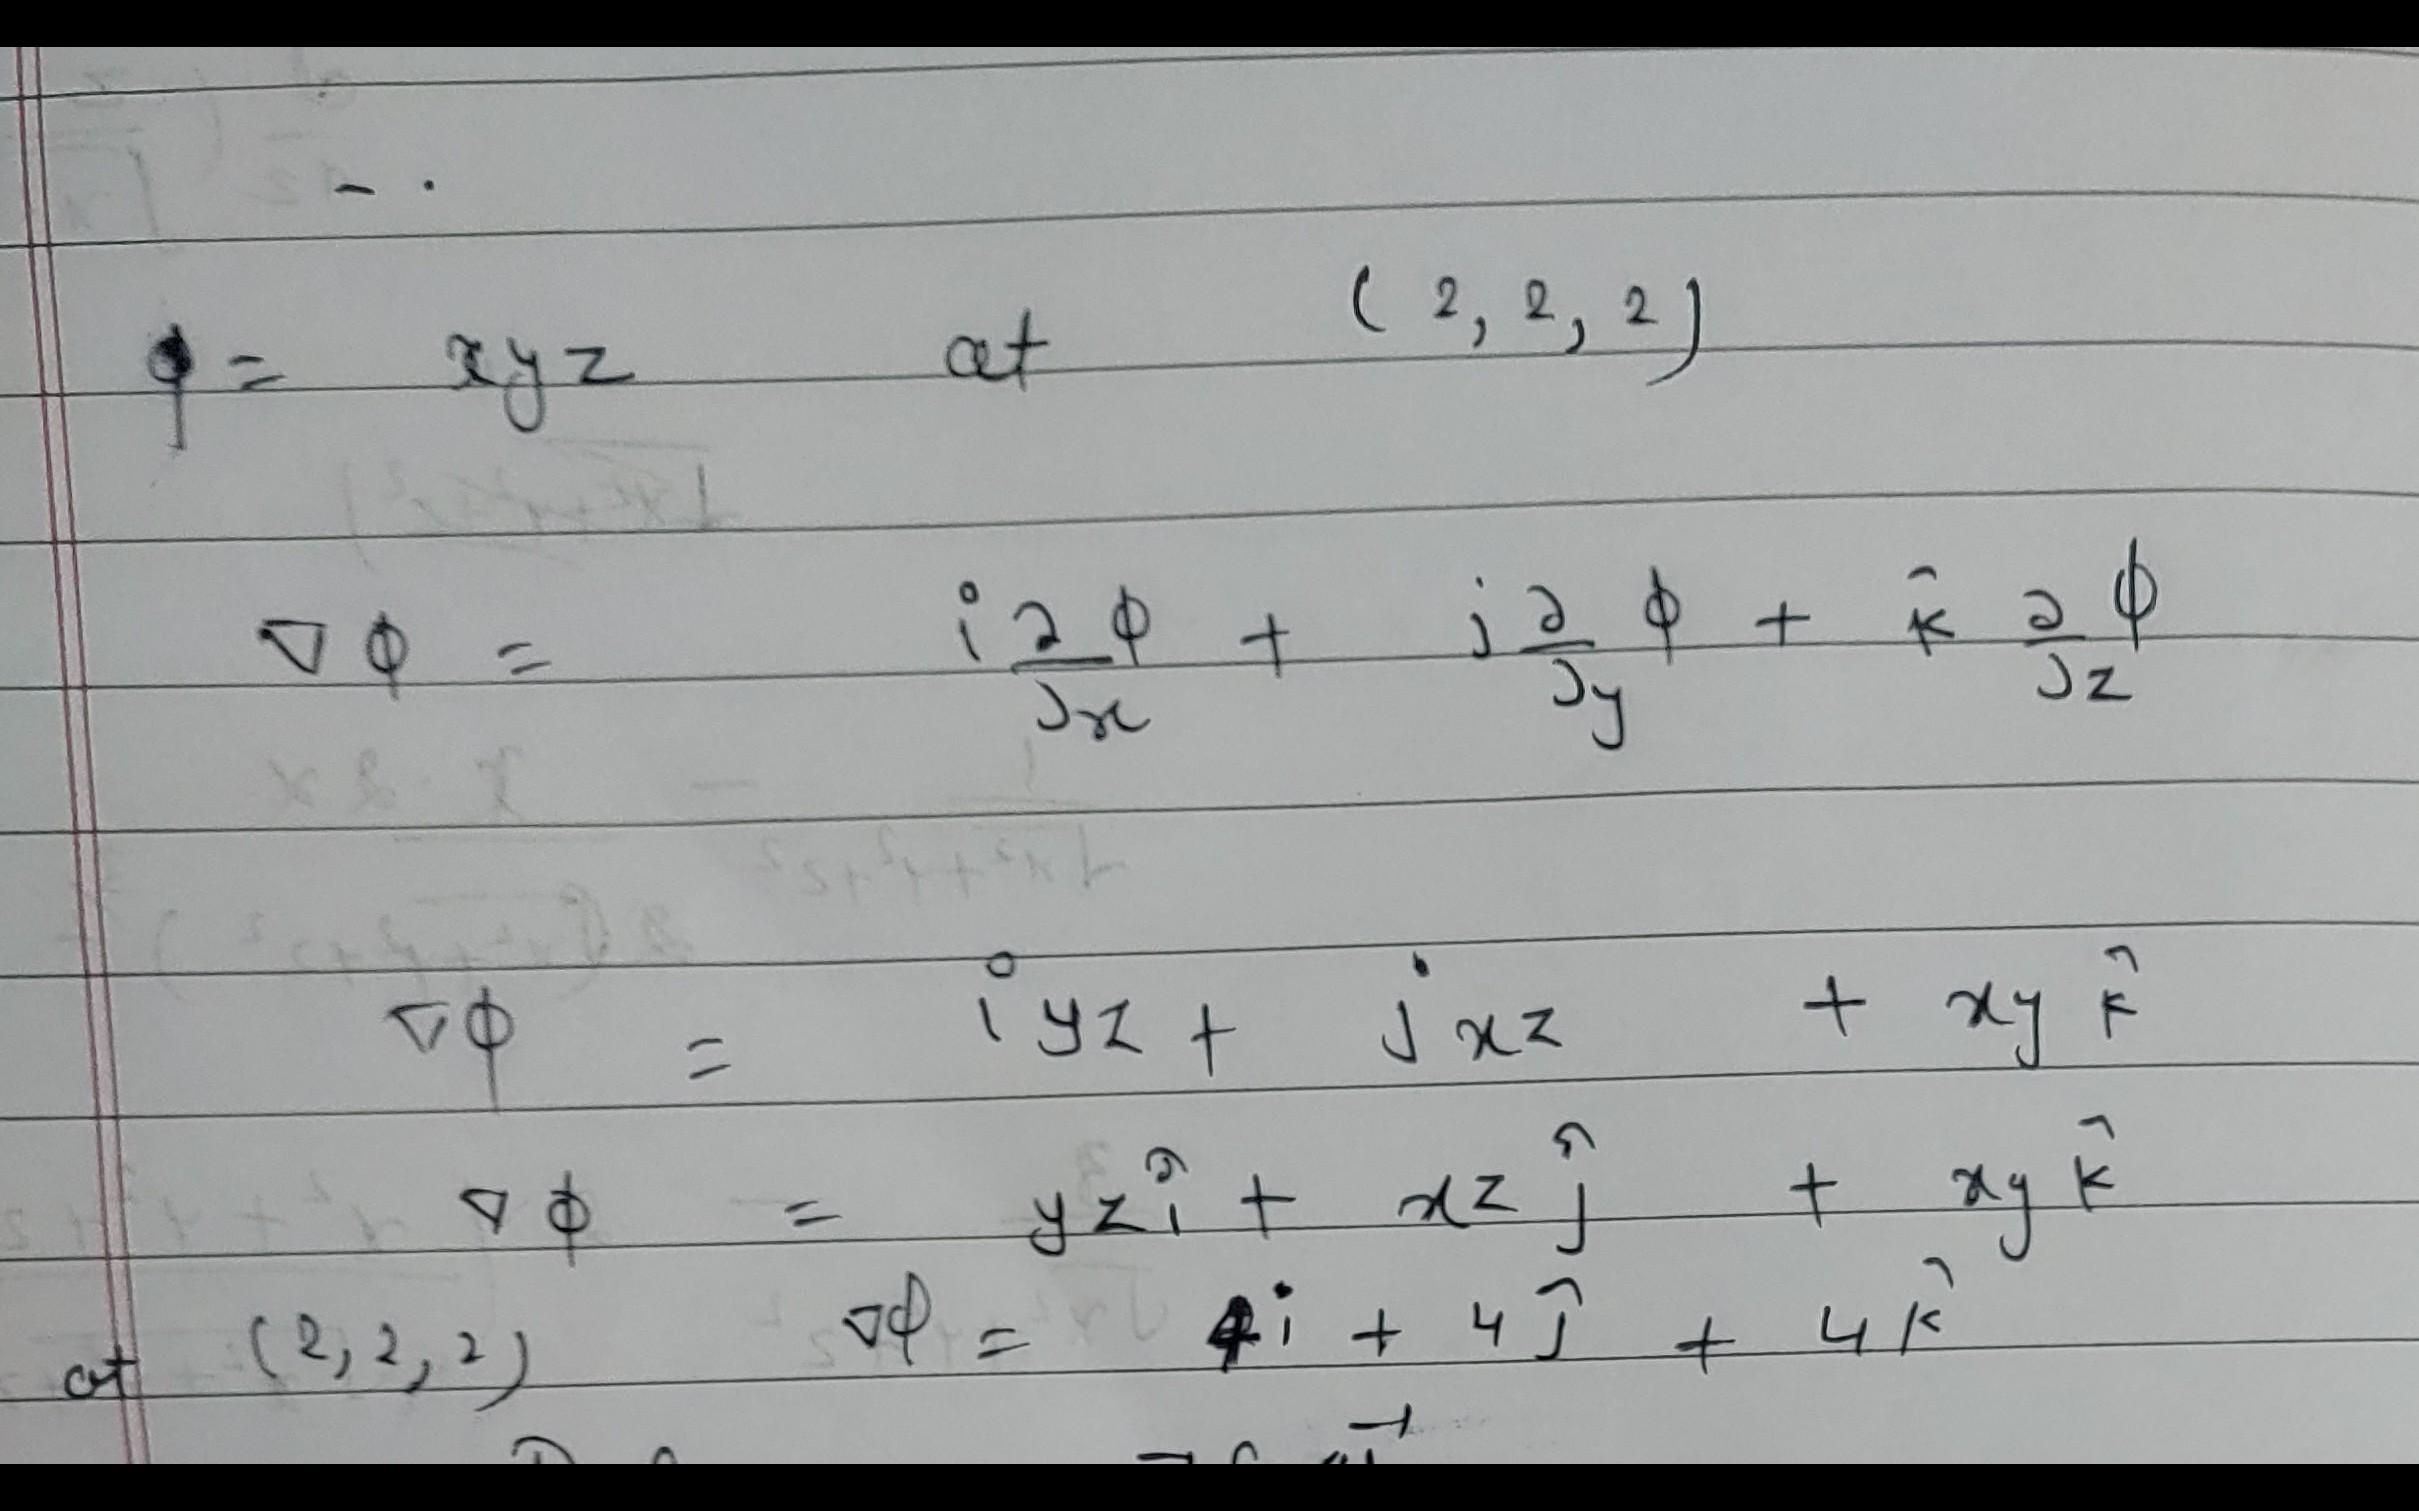 ϕ = xyz at (2, 2, 2)
∇ϕ = i ∂ϕ/∂x + j ∂/∂y ϕ + k̂ ∂/∂z ϕ
∇ϕ = i yz + j xz + xy k̂
∇ϕ = yz î + xz ĵ + xy k̂
at (2, 2, 2) ∇ϕ = 4i + 4ĵ + 4k̂